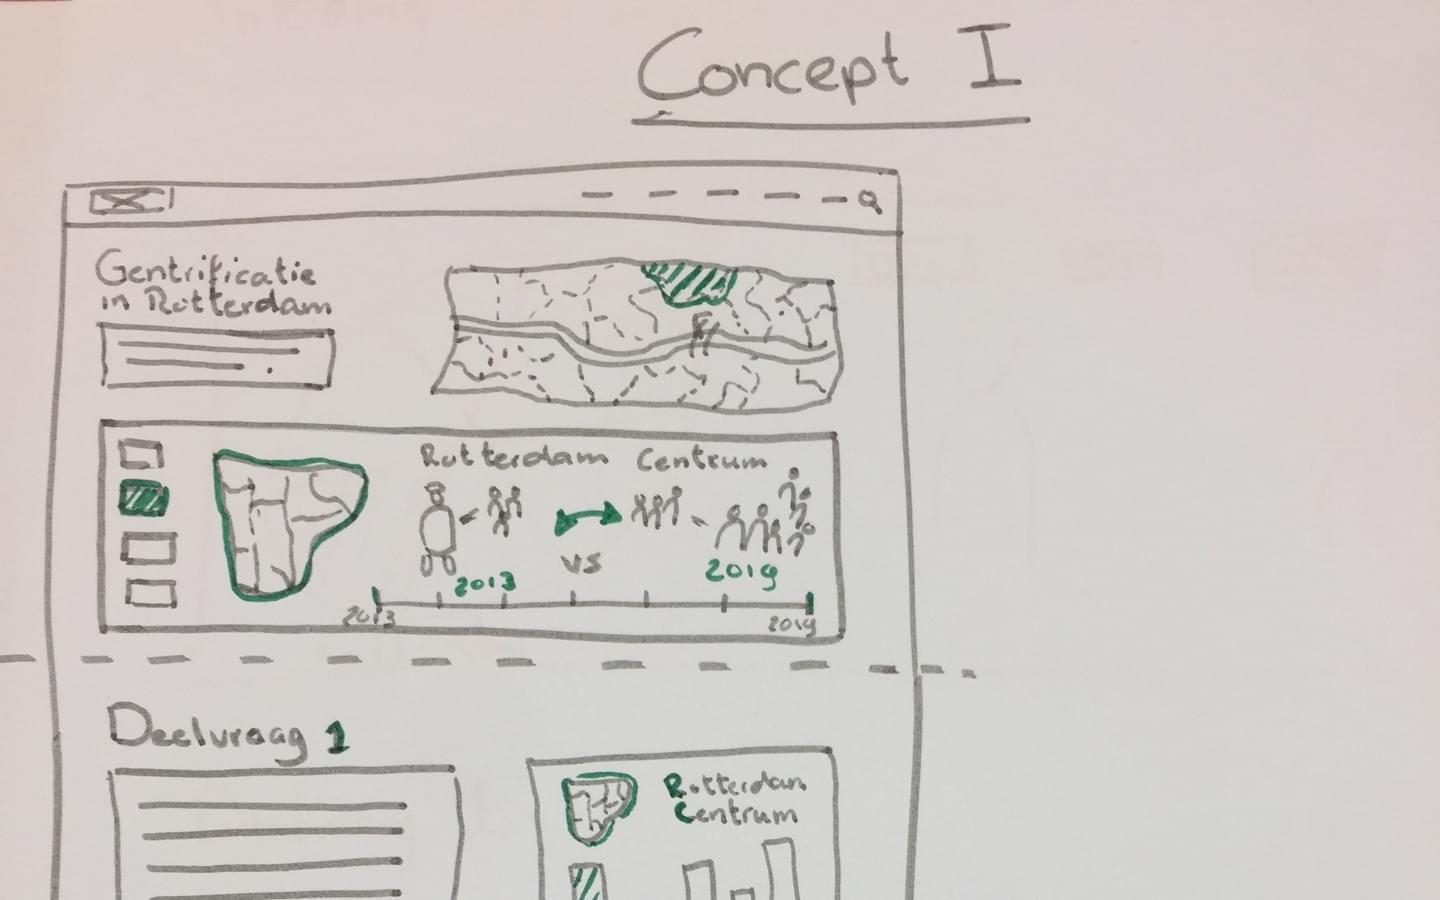 Concept I
Gentrificatie
in Rotterdam
Rotterdam Centrum
vs
2013
2019
2013
2019
Deelvraag 1
Rotterdam
Centrum